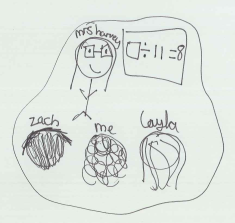 mrs harvey
□÷11=8
zach
me
Layla